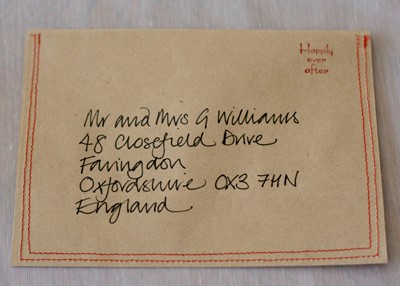 Happily
ever
after
Mr and Mrs G Williams
48 Closefield Drive
Faringdon
Oxfordshire OX3 7HN
England